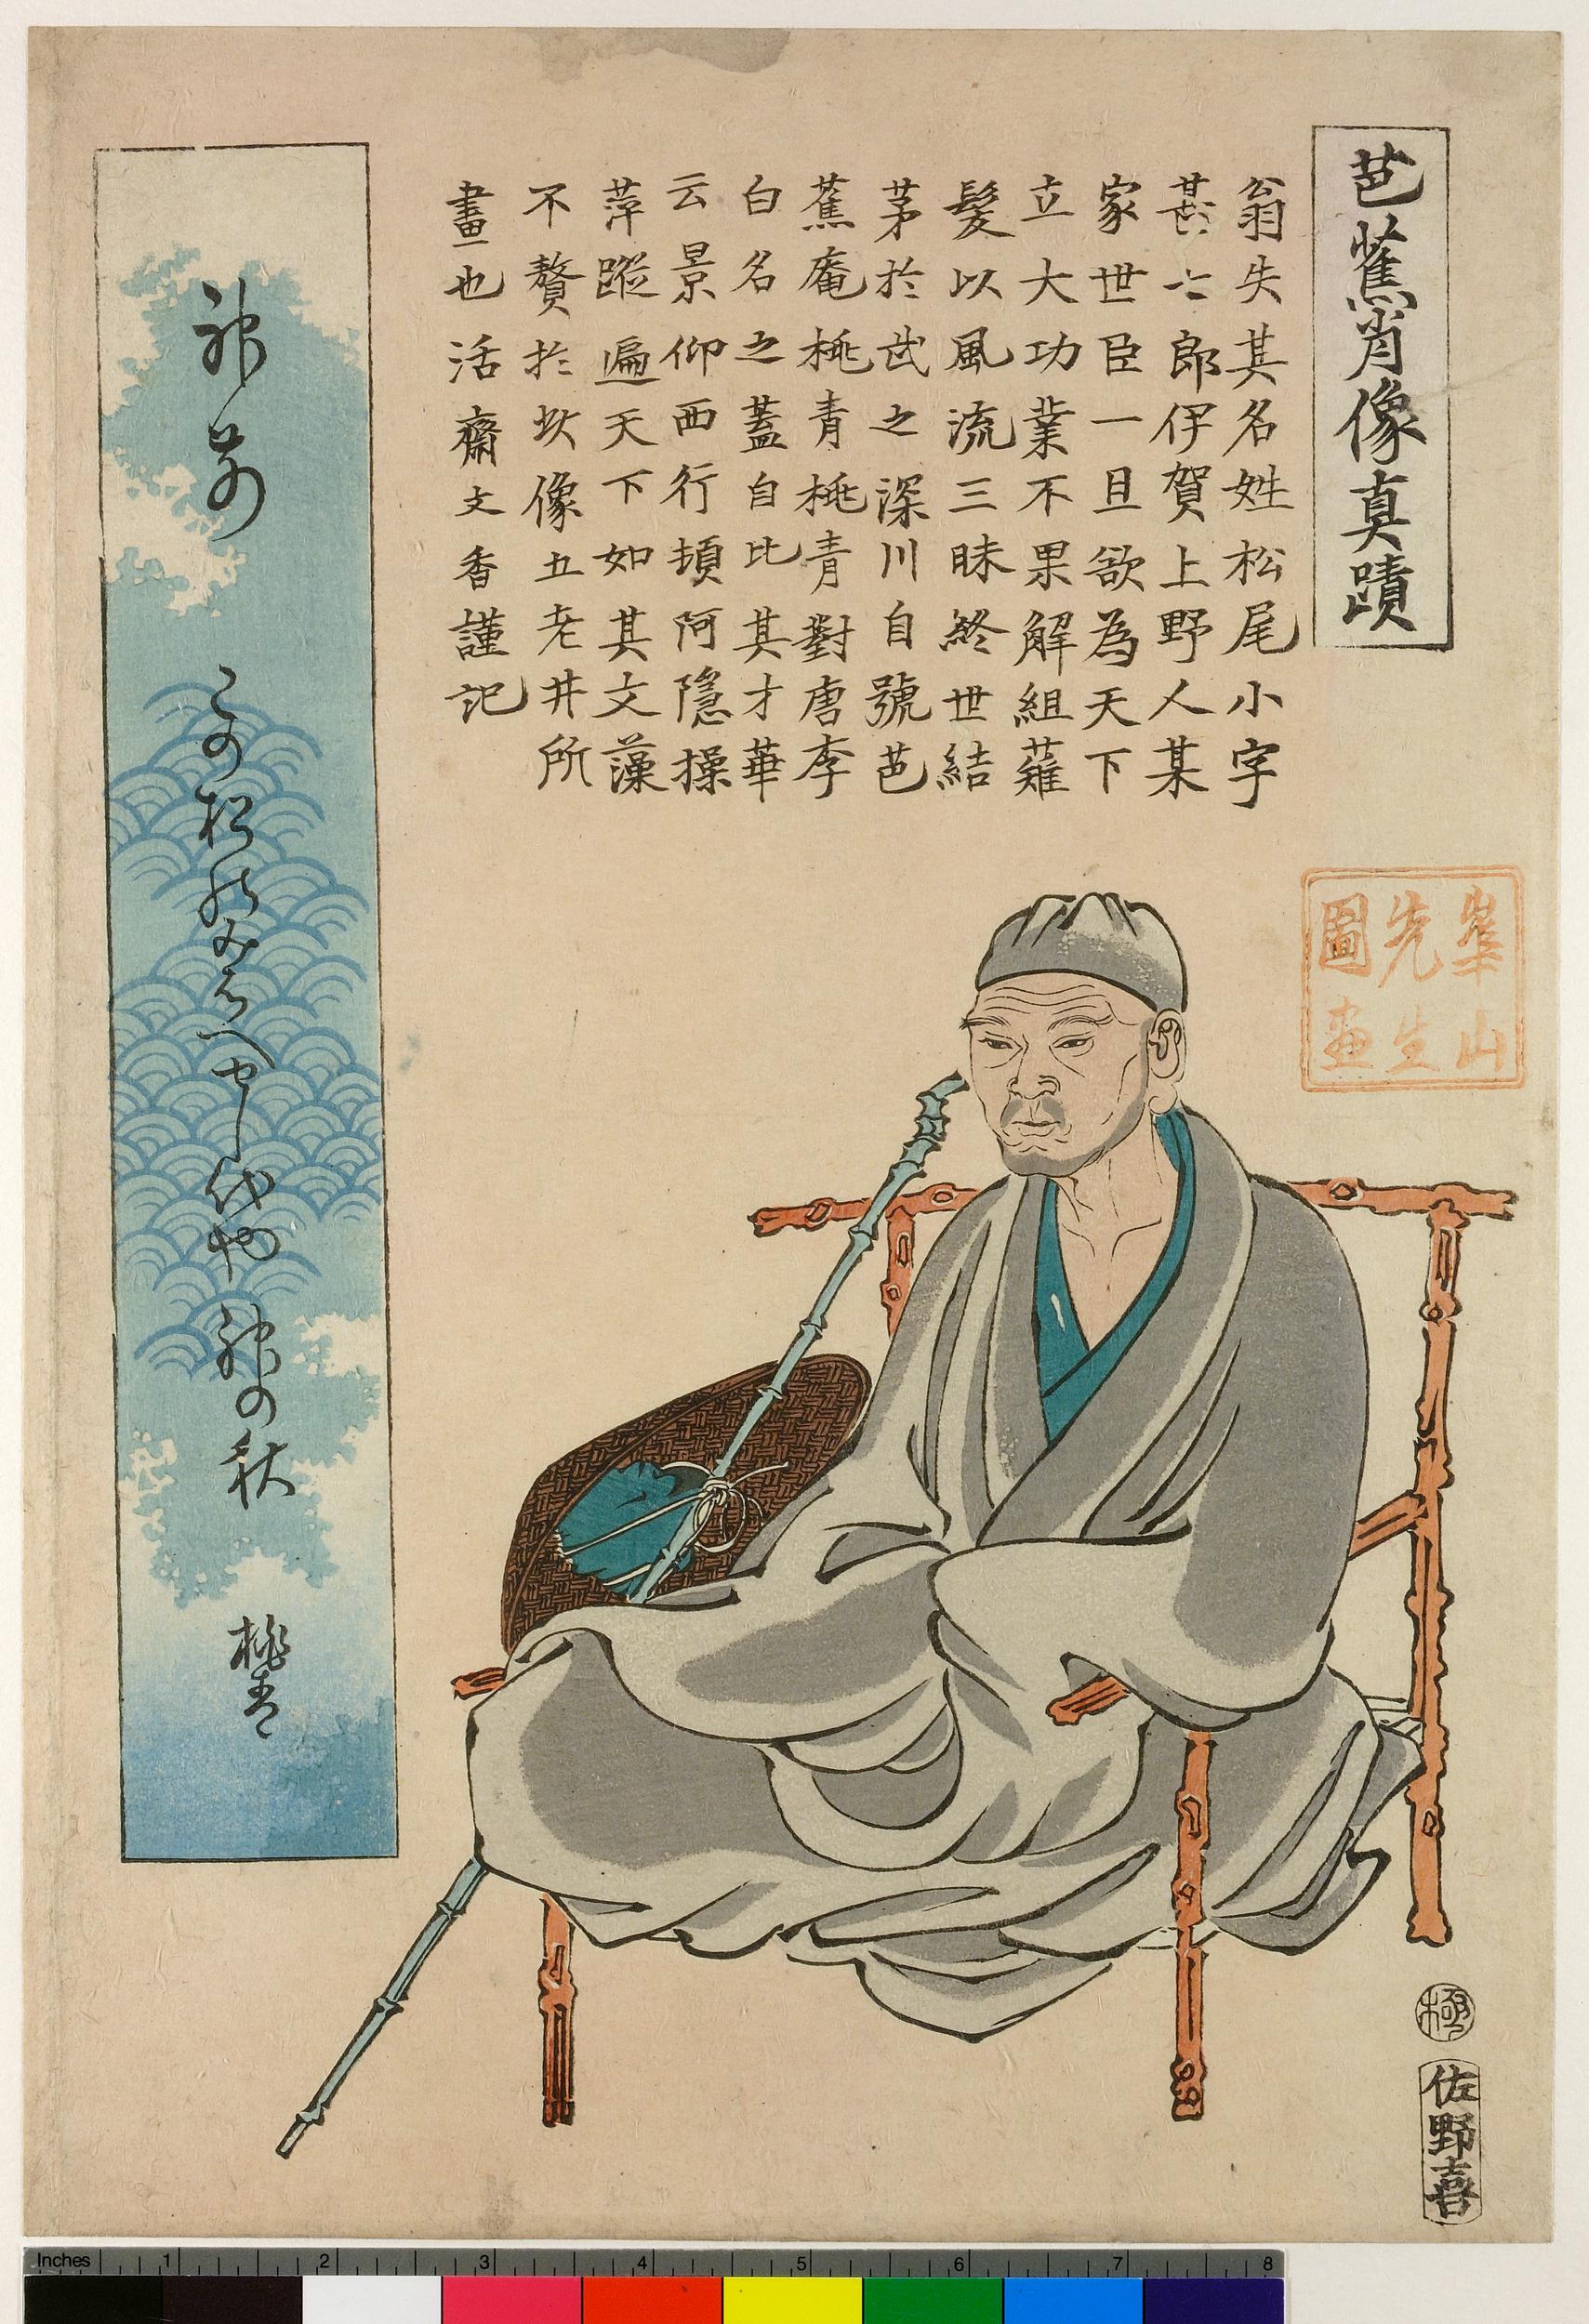 芭蕉肖像真蹟
翁失其名姓松尾小字
甚七郎伊賀上野人某
家世臣一旦欲為天下
立大功業不果解組薙
髮以風流三昧終世結
茅於武之深川自號芭
蕉庵桃青桃青對唐李
白名之蓋自比其才華
云景仰西行頓阿隱操
萍蹤遍天下如其文藻
不贅於此像五老井所
畫也活齋文香謹記
神前
この松のみばへせし代や神の秋
桃青
崋山
先生
圖畫
極
佐野喜
Inches 1 2 3 4 5 6 7 8